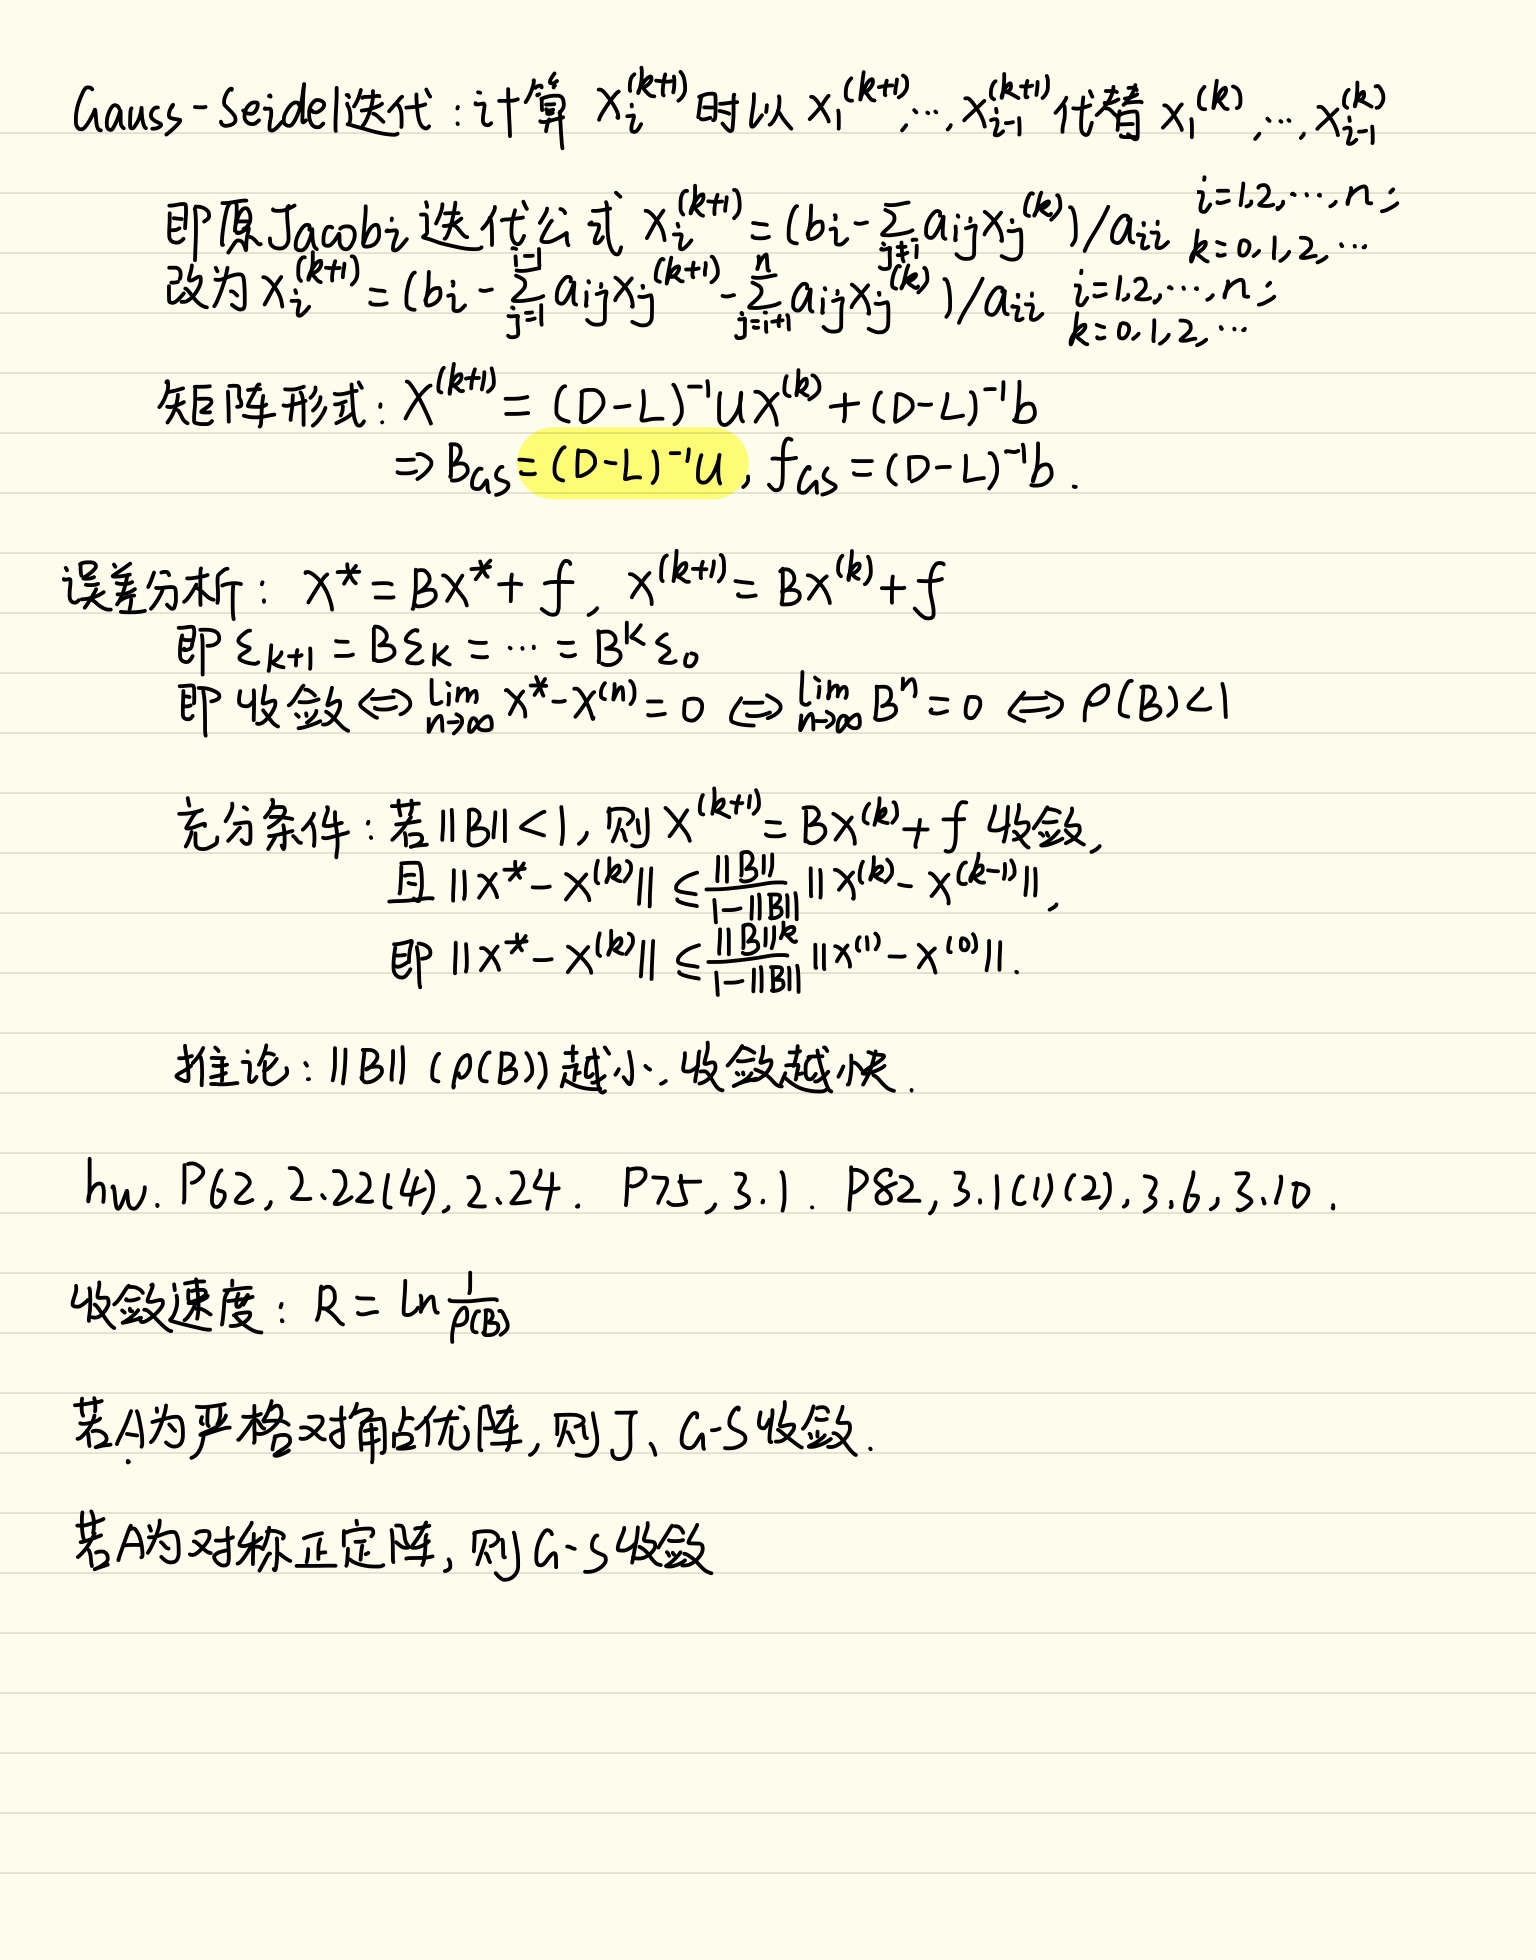 Gauss-Seidel迭代：计算 x_i^(k+1) 时以 x_1^(k+1),…,x_{i-1}^(k+1) 代替 x_1^(k),…,x_{i-1}^(k)
即原Jacobi迭代公式 x_i^(k+1) = (b_i - ∑_{j≠i} a_ij x_j^(k))/a_ii i=1,2,…,n; k=0,1,2,…
改为 x_i^(k+1) = (b_i - ∑_{j=1}^{i-1} a_ij x_j^(k+1) - ∑_{j=i+1}^{n} a_ij x_j^(k))/a_ii i=1,2,…,n; k=0,1,2,…
矩阵形式: X^(k+1) = (D-L)^-1 U X^(k) + (D-L)^-1 b
⇒ B_GS = (D-L)^-1 U, f_GS = (D-L)^-1 b.
误差分析: X* = BX* + f, X^(k+1) = BX^(k) + f
即 ε_{k+1} = Bε_k = … = B^k ε_0
即收敛 ⇔ lim_{n→∞} X* - X^(n) = 0 ⇔ lim_{n→∞} B^n = 0 ⇔ ρ(B)<1
充分条件: 若 ||B||<1, 则 X^(k+1) = BX^(k) + f 收敛,
且 ||X* - X^(k)|| ≤ ||B||/(1-||B||) ||X^(k) - X^(k-1)||,
即 ||X* - X^(k)|| ≤ ||B||^k/(1-||B||) ||X^(1) - X^(0)||.
推论: ||B|| (ρ(B)) 越小, 收敛越快.
hw. P62, 2.22(4), 2.24. P75, 3.1. P82, 3.1(1)(2), 3.6, 3.10.
收敛速度: R = ln 1/ρ(B)
若A为严格对角占优阵, 则 J、G-S收敛.
若A为对称正定阵, 则G-S收敛